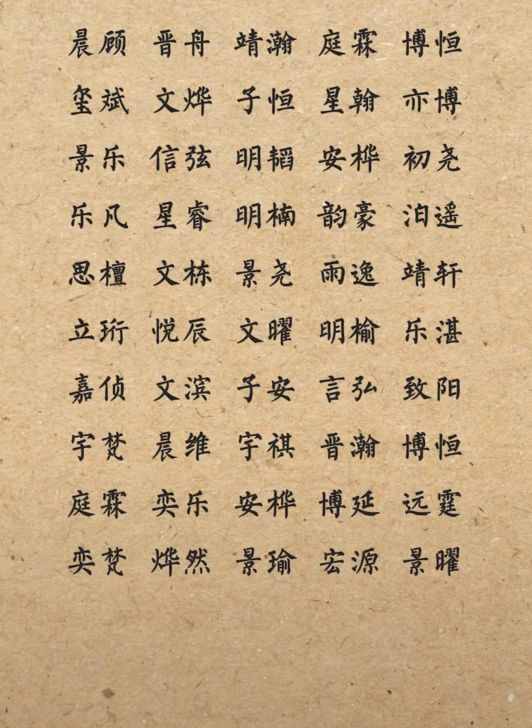 晨顾 晋舟 靖瀚 庭霖 博恒
玺斌 文烨 子恒 星翰 亦博
景乐 信弦 明韬 安桦 初尧
乐凡 星睿 明楠 韵豪 泊遥
思檀 文栋 景尧 雨逸 靖轩
立珩 悦辰 文曜 明榆 乐湛
嘉侦 文滨 子安 言弘 致阳
宇梵 晨维 宇祺 晋瀚 博恒
庭霖 奕乐 安桦 博延 远霆
奕梵 烨然 景瑜 宏源 景曜